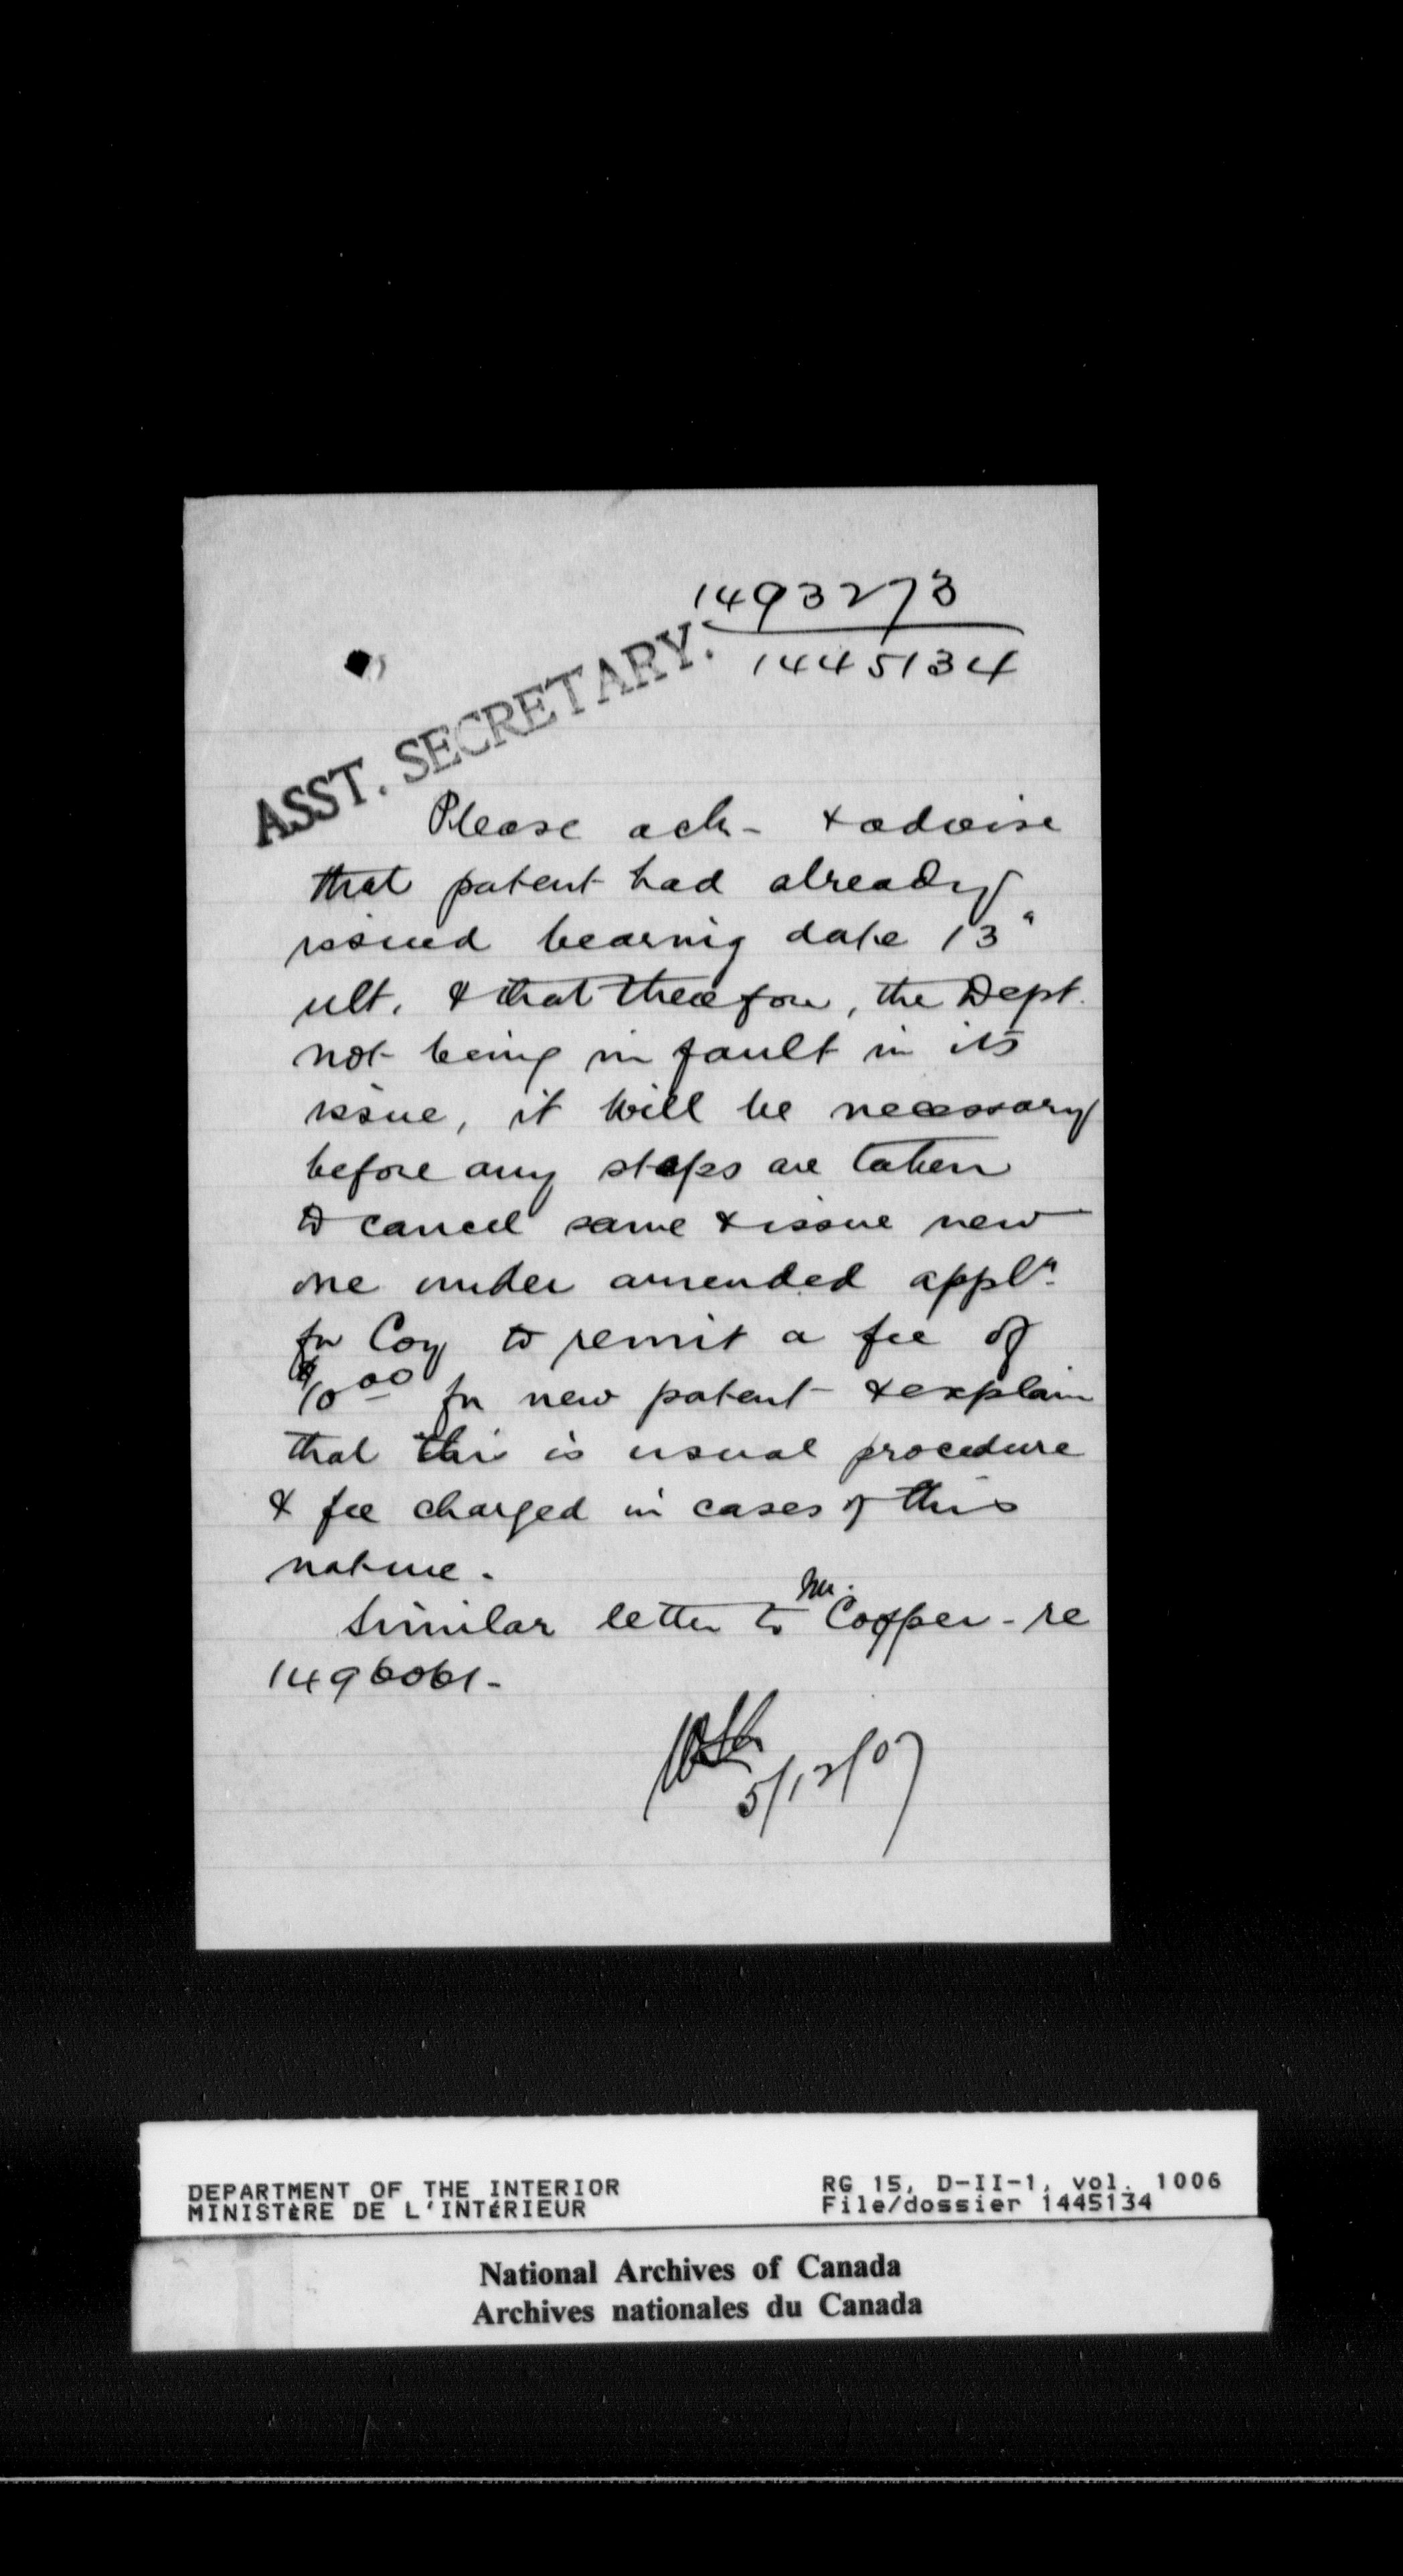 1493273
1445134
ASST. SECRETARY.
Please ack- & advise
that patent had already
issued bearing date 13"
ult. & that therefore, the Dept.
not being in fault in its
issue, it will be necessary
before any steps are taken
to cancel same & issue new
one under amended appln.
for Coy to remit a fee of
$10.00 for new patent & explain
that this is usual procedure
& fee charged in cases of this
nature.
Similar letter to Mr. Cooper - re
1496061-
5/12/07
DEPARTMENT OF THE INTERIOR
MINISTÈRE DE L'INTÉRIEUR
RG 15, D-II-1, vol. 1006
File/dossier 1445134
National Archives of Canada
Archives nationales du Canada